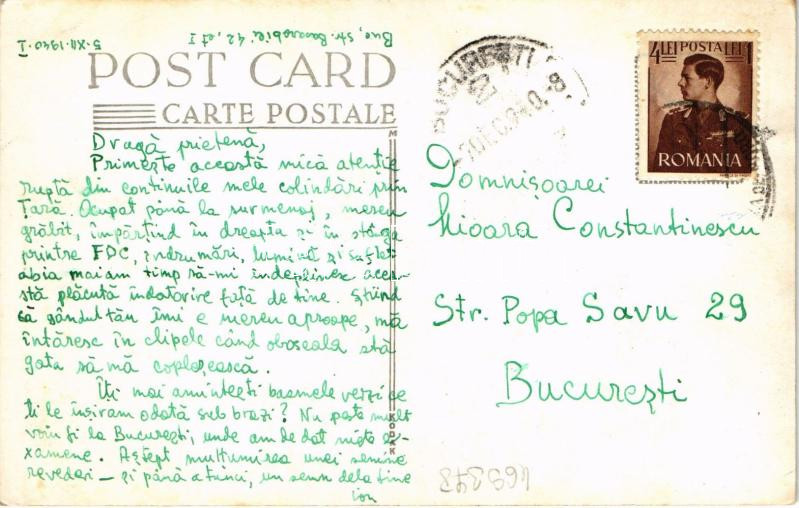 Buc, str. Basarabiei 42, et I
5.XII.1940.I
POST CARD
CARTE POSTALE
Dragă prietenă,
Primește această mică atenție
ruptă din continuile mele colindări prin
Țară. Ocupat până la surmenaj, mereu
grăbit, împărțind în dreapta și în stânga
printre FDC, îndrumări, lumină și suflet
abia mai am timp să-mi îndeplinesc acea-
stă plăcută îndatorire față de tine. Știind
că gândul tău îmi e mereu aproape, mă
întăresc în clipele când oboseala stă
gata să mă copleșească.
Îți mai amintești basmele verzi ce
ți le înșiram odată sub brazi? Nu peste mult
voiu fi la București, unde am de dat niște e-
xamene. Aștept mulțumirea unei senine
revederi — și până atunci, un semn dela tine
ion
KODAK
BUCUREȘTI
4 LEI POSTA LEI 1
ROMANIA
Domnișoarei
Mioara Constantinescu
Str. Popa Savu 29
București